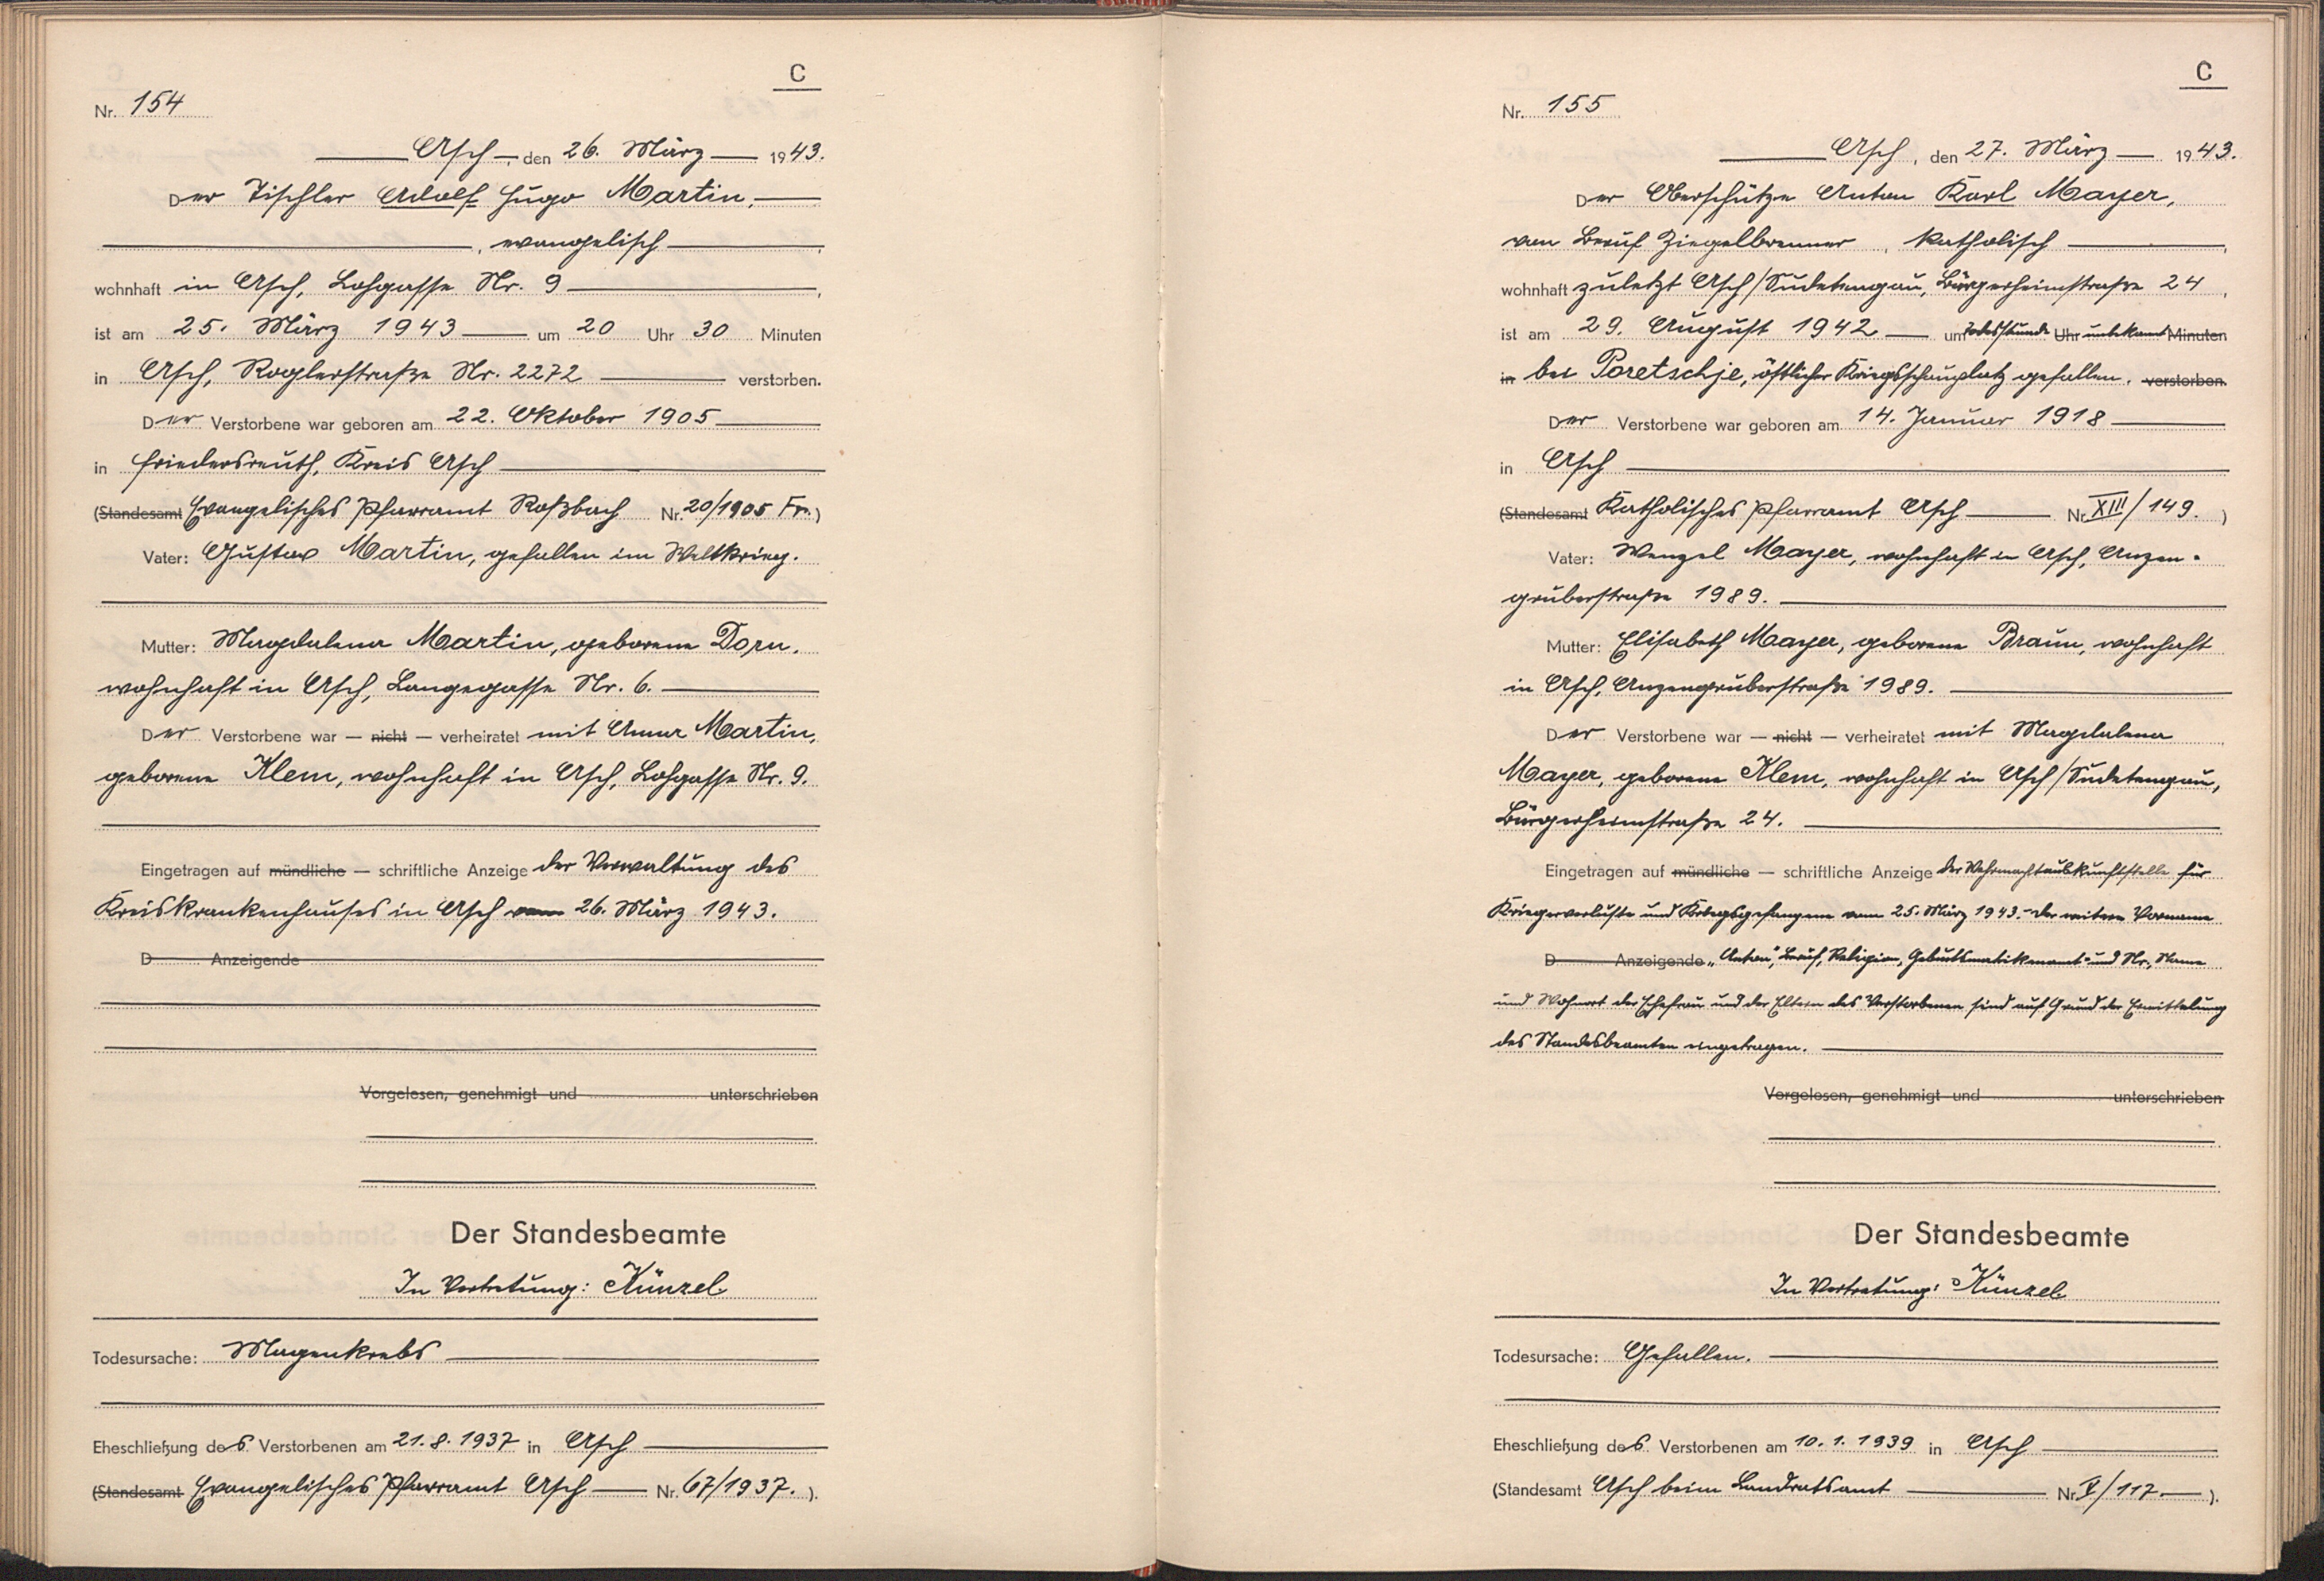 C
Nr. 154
Asch, den 26. März 1943.
Der Tischler Adolf Hugo Martin,
, evangelisch ,
wohnhaft in Asch, Lohgasse Nr. 9 ,
ist am 25. März 1943 um 20 Uhr 30 Minuten
in Asch, Roglerstraße Nr. 2272 verstorben.
Der Verstorbene war geboren am 22. Oktober 1905
in Friedersreuth, Kreis Asch
(Standesamt Evangelisches Pfarramt Roßbach Nr. 20/1905 Fr.)
Vater: Gustav Martin, gefallen im Weltkrieg.
Mutter: Magdalena Martin, geborene Dorn,
wohnhaft in Asch, Langegasse Nr. 6.
Der Verstorbene war — nicht — verheiratet mit Anna Martin,
geborene Klem, wohnhaft in Asch, Lohgasse Nr. 9.
Eingetragen auf mündliche — schriftliche Anzeige der Verwaltung des
Kreiskrankenhauses in Asch vom 26. März 1943.
D Anzeigende
Vorgelesen, genehmigt und unterschrieben
Der Standesbeamte
In Vertretung: Künzel
Todesursache: Magenkrebs
Eheschließung des Verstorbenen am 21.8.1937 in Asch
(Standesamt Evangelisches Pfarramt Asch Nr. 67/1937. ).
C
Nr. 155
Asch, den 27. März 1943.
Der Oberschütze Anton Karl Mayer,
von Beruf Ziegelbrenner, katholisch ,
wohnhaft zuletzt Asch/Sudetengau, Bürgerheimstraße 24 ,
ist am 29. August 1942 um Todesstunde Uhr unbekannt Minuten
in bei Poretschje, östlicher Kriegsschauplatz gefallen. verstorben.
Der Verstorbene war geboren am 14. Januar 1918
in Asch
(Standesamt Katholisches Pfarramt Asch Nr. XIII/149. )
Vater: Wenzel Mayer, wohnhaft in Asch, Anzen-
gruberstraße 1989.
Mutter: Elisabeth Mayer, geborene Braun, wohnhaft
in Asch, Anzengruberstraße 1989.
Der Verstorbene war — nicht — verheiratet mit Magdalena
Mayer, geborene Klem, wohnhaft in Asch/Sudetengau,
Bürgerheimstraße 24.
Eingetragen auf mündliche — schriftliche Anzeige der Wehrmachtauskunftstelle für
Kriegerverluste und Kriegsgefangene vom 25. März 1943.- Der weitere Vorname
D Anzeigende „Anton", Beruf, Religion, Geburtsmatrikenamt und Nr., Name
und Wohnort der Ehefrau und der Eltern des Verstorbenen sind auf Grund der Ermittelung
des Standesbeamten eingetragen.
Vorgelesen, genehmigt und unterschrieben
Der Standesbeamte
In Vertretung: Künzel
Todesursache: Gefallen.
Eheschließung des Verstorbenen am 10.1.1939 in Asch
(Standesamt Asch beim Landratsamt Nr. V/117 ).